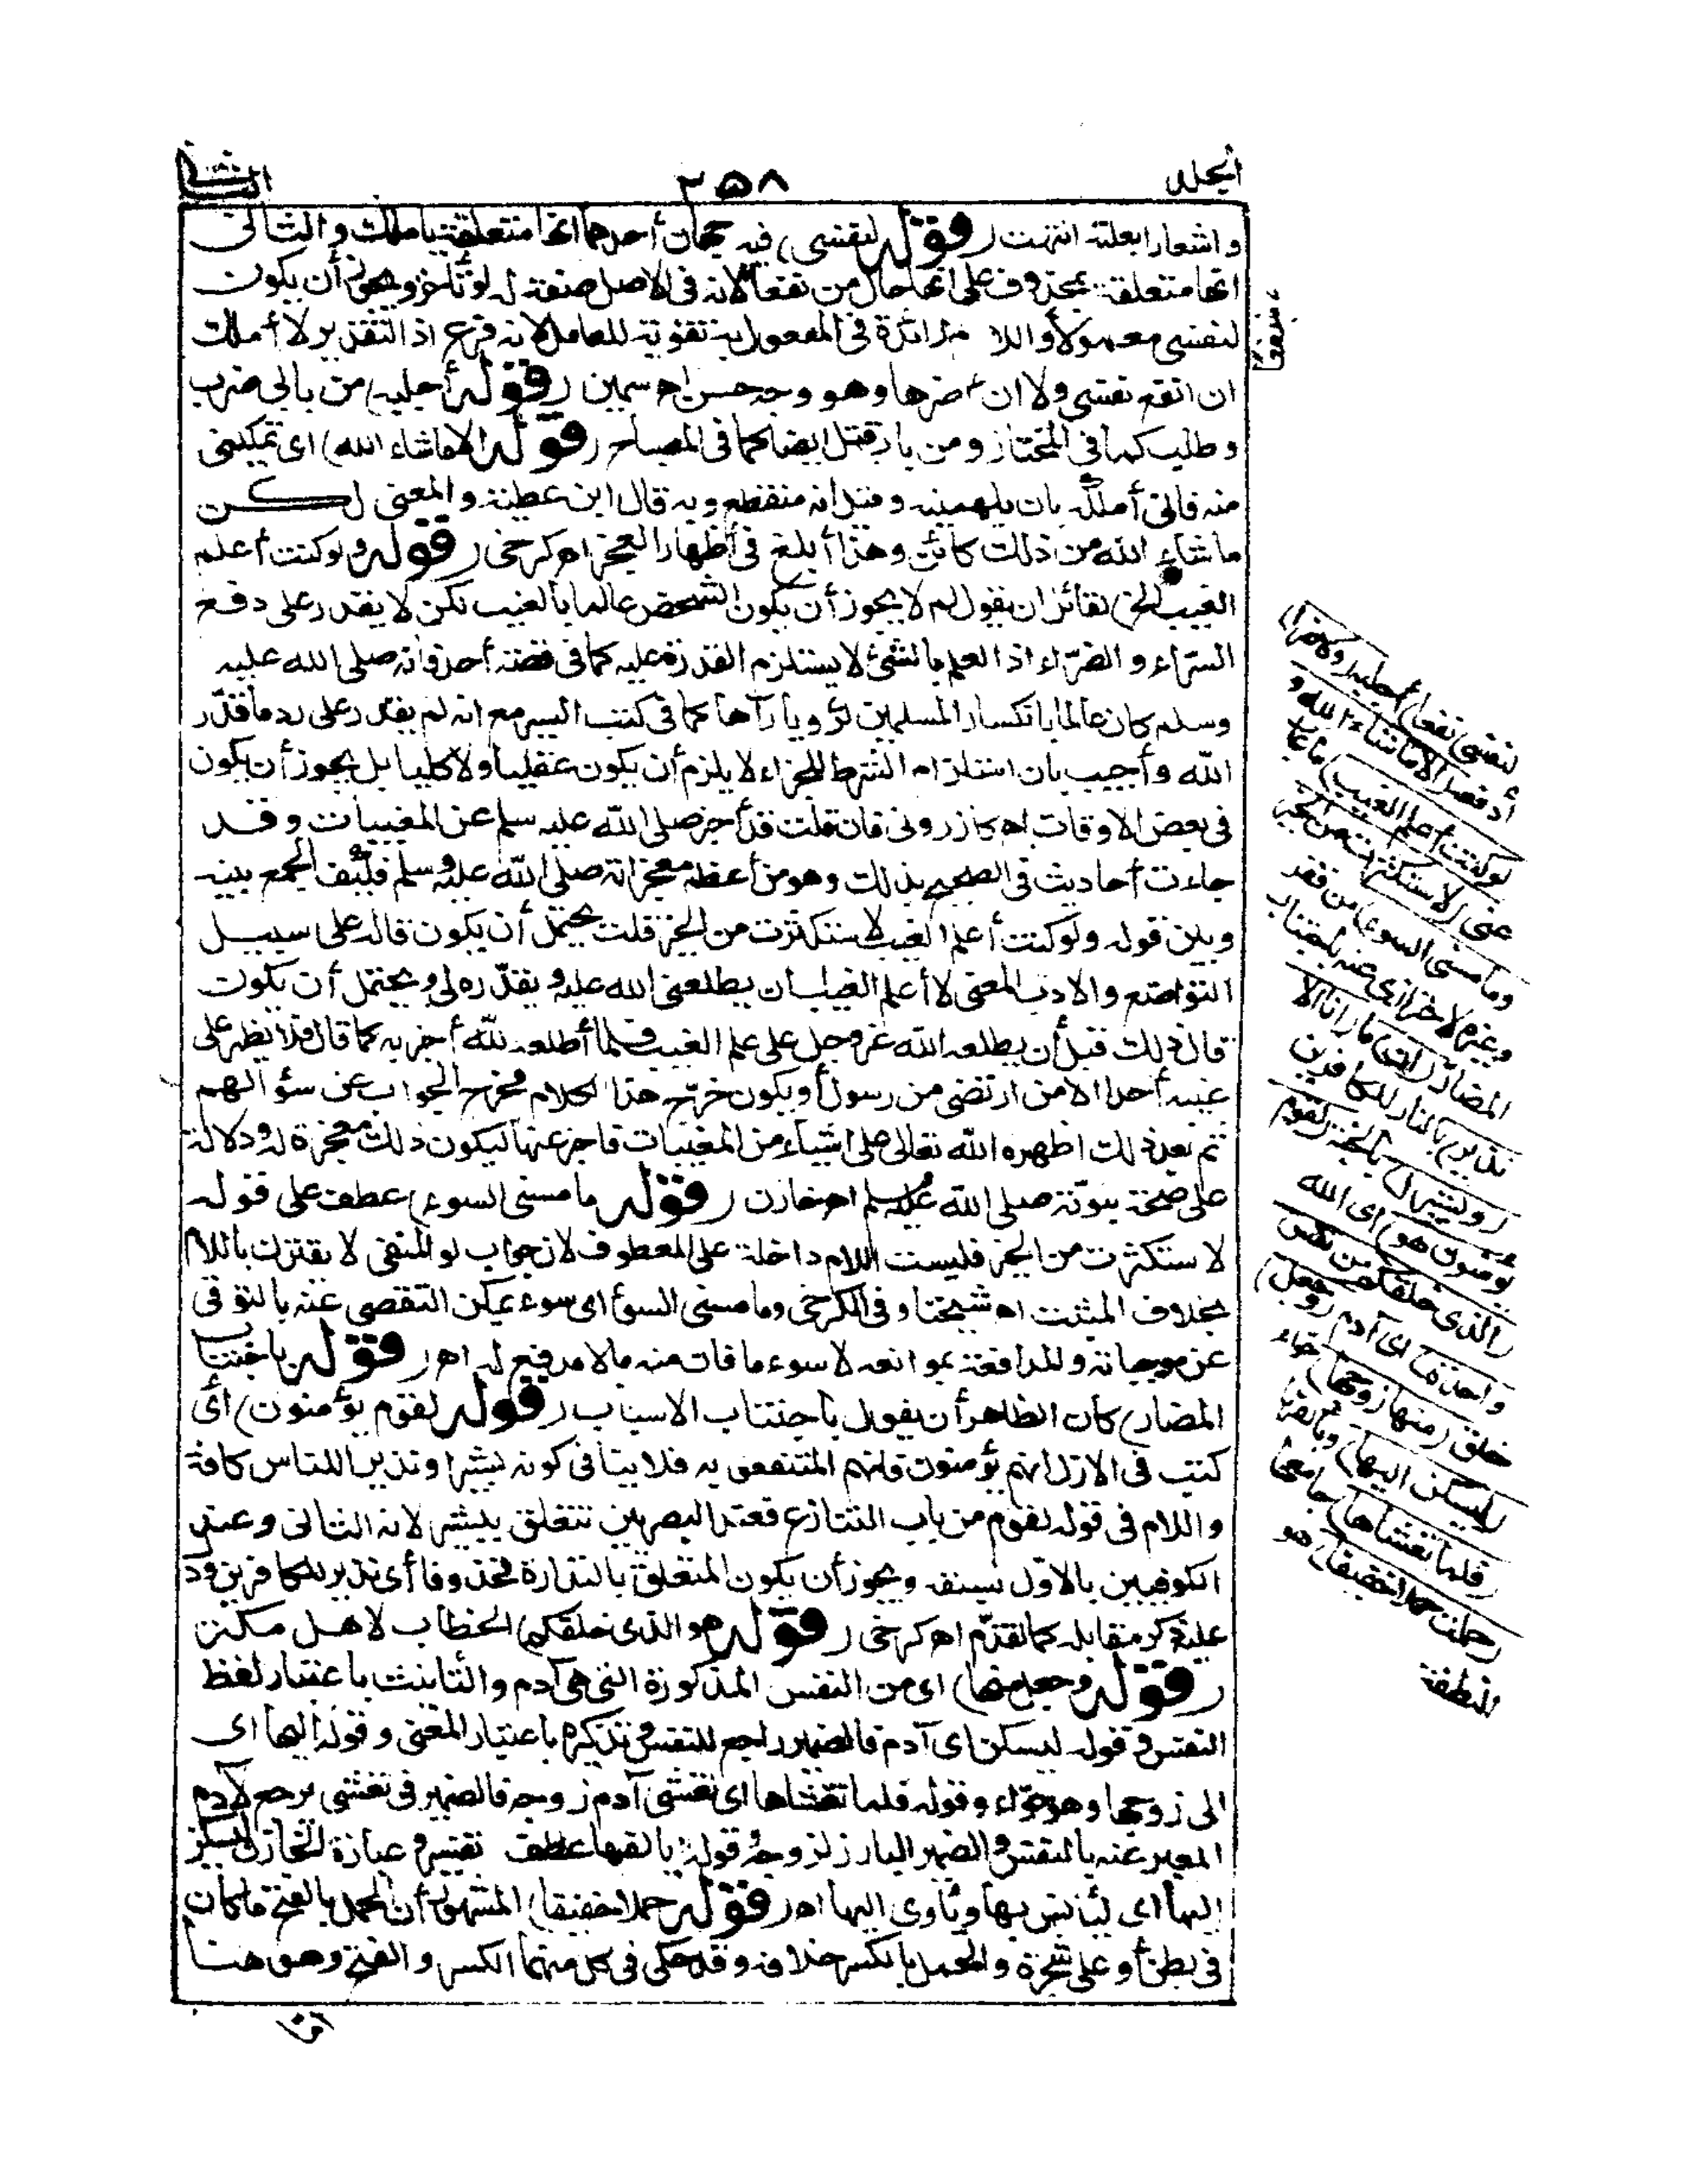 الجلد
٢٥٨
الثانی
واشعارا بعلته انتهت (قوله لنفسی) فیه وجهان أحدهما انها متعلقة باملك والثانی
انها متعلقة بمحذوف علی انها حال من نفعا لانه فی الاصل صفة له لو تأخر ویجوز أن یکون
لنفسی معمولا واللام زائدة فی المفعول به تقویة للعامل لانه فرع اذ التقدیر لا أملك
ان انفع نفسی ولا ان اضرها وهو وجه حسن اه سمین (قوله أجلبه) من بابی ضرب
وطلب کما فی المختار ومن باب قتل ایضا کما فی المصباح (قوله الا ماشاء الله) ای تمکینی
منه فانی أملکه بان یلهمنیه وقیل انه منقطع وبه قال ابن عطیة والمعنی لکن
ماشاء الله من ذلك کائن وهذا أبلغ فی اظهار العجز اه کرخی (قوله ولو کنت أعلم
الغیب الخ) لقائل ان یقول لم لا یجوز أن یکون الشخص عالما بالغیب لکن لا یقدر علی دفع
السراء والضراء اذ العلم بالشئ لا یستلزم القدرة علیه کما فی قصة أحد فانه صلی الله علیه
وسلم کان عالما بانکسار المسلمین لرؤیا رآها کما فی کتب السیر مع انه لم یقدر علی رد ما قدّر
الله وأجیب بان استلزام الشرط للجزاء لا یلزم أن یکون عقلیا ولا کلیا بل یجوز أن یکون
فی بعض الاوقات اه کازرونی فان قلت قد أخبر صلی الله علیه وسلم عن المغیبات وقد
جاءت أحادیث فی الصحیح بذلك وهو من أعظم معجزاته صلی الله علیه وسلم فکیف الجمع بینه
وبین قوله ولو کنت أعلم الغیب لاستکثرت من الخیر قلت یحتمل أن یکون قاله علی سبیل
التواضع والادب والمعنی لا أعلم الغیب الا ان یطلعنی الله علیه ویقدّره لی ویحتمل أن یکون
قال ذلك قبل أن یطلعه الله عز وجل علی علم الغیب فلما أطلعه الله أخبر به کما قال فلا یظهر علی
غیبه أحدا الا من ارتضی من رسول أو یکون خرّج هذا الکلام مخرج الجواب عن سؤالهم
ثم بعد ذلك اظهره الله تعالی علی اشیاء من المغیبات فاخبر عنها لیکون ذلك معجزة له ودلالة
علی صحة نبوّته صلی الله علیه وسلم اه خازن (قوله ما مسنی السوء) عطف علی قوله
لاستکثرت من الخیر فلیست اللام داخلة علی المعطوف لان جواب لو المنفی لا یقترن باللام
بخلاف المثبت اه شیخنا وفی الکرخی وما مسنی السوء ای سوء یمکن التقصی عنه بالتوقی
عن موجباته والمدافعة بموانعه لا سوء ما فات منه ما لا مدفع له اه (قوله باجتناب
المضار) کان الظاهر أن یقول باجتناب الاسباب (قوله لقوم یؤمنون) أی
کتب فی الازل انهم یؤمنون فانهم المنتفعون به فلا ینافی کونه بشیرا ونذیرا للناس کافة
واللام فی قوله لقوم من باب التنازع فعند البصریین تتعلق ببشیر لانه الثانی وعند
الکوفیین بالاول لسبقه ویجوز أن یکون المتعلق بالنذارة محذوفا أی نذیر للکافرین ودل
علیه ذکر مقابله کما تقدّم اه کرخی (قوله هو الذی خلقکم) الخطاب لاهل مکة
(قوله وجعل منها) ای من النفس المذکورة التی هی آدم والتأنیث باعتبار لفظ
النفس وقوله لیسکن ای آدم فالضمیر راجع للنفس وتذکیره باعتبار المعنی وقوله الیها ای
الی زوجها وهو حوّاء وقوله فلما تغشاها ای تغشی آدم زوجه فالضمیر فی تغشی یرجع لآدم
المعبر عنه بالنفس والضمیر البارز لزوجه وقوله یالفها عطف تفسیر وعبارة الخازن لیسکن
الیها ای لیأنس بها ویأوی الیها اه (قوله حملا خفیفا) المشهور أن الحمل بالفتح ما کان
فی بطن أو علی شجرة والحمل بالکسر خلافه وقد حکی فی کل منهما الکسر والفتح وهو هنا
لنفسی نفعا) أجلبه (ولا ضرا)
أدفعه (الا ماشاء الله و
لو کنت أعلم الغیب) ما غاب
عنی (لاستکثرت من الخیر
وما مسنی السوء) من فقر
وغیره لاحترازی عنه باجتناب
المضار (ان) ما (أنا الا
نذیر) بالنار للکافرین
(وبشیر) بالجنة (لقوم
یؤمنون هو) ای الله
(الذی خلقکم من نفس
واحدة) ای آدم (وجعل)
خلق (منها زوجها) حواء
(لیسکن الیها) ویألفها
(فلما تغشاها) جامعها
(حملت حملا خفیفا) هو
النطفة